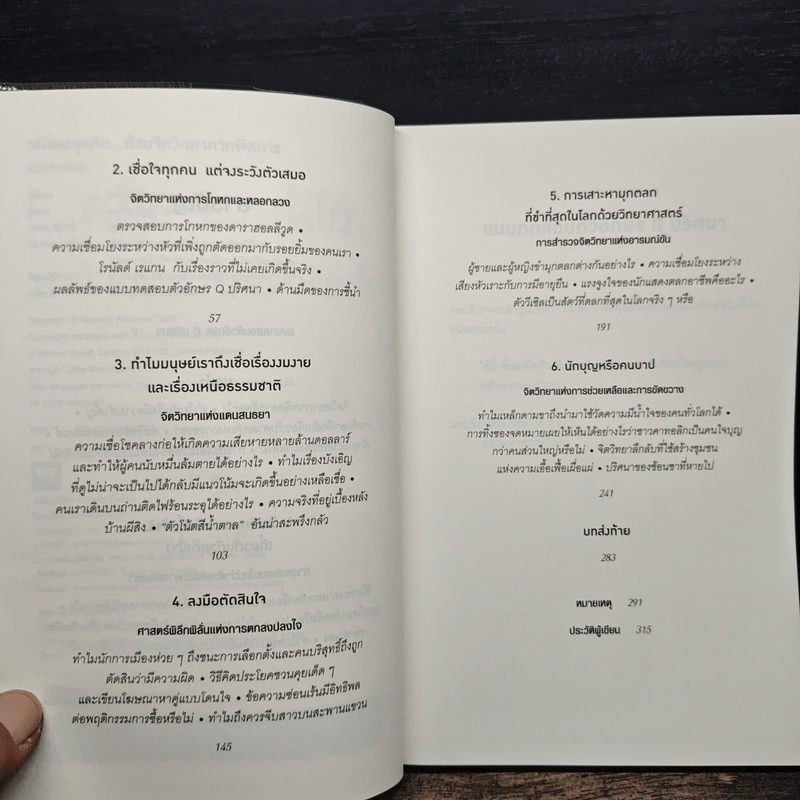 2. เชื่อใจทุกคน แต่จงระวังตัวเสมอ
จิตวิทยาแห่งการโกหกและหลอกลวง
ตรวจสอบการโกหกของดาราฮอลลีวูด •
ความเชื่อมโยงระหว่างหัวที่เพิ่งถูกตัดออกมากับรอยยิ้มของคนเรา •
โรนัลด์ เรแกน กับเรื่องราวที่ไม่เคยเกิดขึ้นจริง •
ผลลัพธ์ของแบบทดสอบตัวอักษร Q ปริศนา • ด้านมืดของการชี้นำ
57
3. ทำไมมนุษย์เราถึงเชื่อเรื่องงมงาย
และเรื่องเหนือธรรมชาติ
จิตวิทยาแห่งแดนสนธยา
ความเชื่อโชคลางก่อให้เกิดความเสียหายหลายล้านดอลลาร์
และทำให้ผู้คนนับหมื่นล้มตายได้อย่างไร • ทำไมเรื่องบังเอิญ
ที่ดูไม่น่าจะเป็นไปได้กลับมีแนวโน้มจะเกิดขึ้นอย่างเหลือเชื่อ •
คนเราเดินบนถ่านติดไฟร้อนระอุได้อย่างไร • ความจริงที่อยู่เบื้องหลัง
บ้านผีสิง • “ตัวโน้ตสีน้ำตาล” อันน่าสะพรึงกลัว
103
4. ลงมือตัดสินใจ
ศาสตร์พิลึกพิลั่นแห่งการตกลงปลงใจ
ทำไมนักการเมืองห่วย ๆ ถึงชนะการเลือกตั้งและคนบริสุทธิ์ถึงถูก
ตัดสินว่ามีความผิด • วิธีคิดประโยคชวนคุยเด็ด ๆ
และเขียนโฆษณาหาคู่แบบโดนใจ • ข้อความซ่อนเร้นมีอิทธิพล
ต่อพฤติกรรมการซื้อหรือไม่ • ทำไมถึงควรจีบสาวบนสะพานแขวน
145
5. การเสาะหามุกตลก
ที่ขำที่สุดในโลกด้วยวิทยาศาสตร์
การสำรวจจิตวิทยาแห่งอารมณ์ขัน
ผู้ชายและผู้หญิงขำมุกตลกต่างกันอย่างไร • ความเชื่อมโยงระหว่าง
เสียงหัวเราะกับการมีอายุยืน • แรงจูงใจของนักแสดงตลกอาชีพคืออะไร •
ตัววีเซิลเป็นสัตว์ที่ตลกที่สุดในโลกจริง ๆ หรือ
191
6. นักบุญหรือคนบาป
จิตวิทยาแห่งการช่วยเหลือและการขัดขวาง
ทำไมเหล็กดามขาถึงนำมาใช้วัดความมีน้ำใจของคนทั่วโลกได้ •
การทิ้งซองจดหมายเผยให้เห็นได้อย่างไรว่าชาวคาทอลิกเป็นคนใจบุญ
กว่าคนส่วนใหญ่หรือไม่ • จิตวิทยาลึกลับที่ใช้สร้างชุมชน
แห่งความเอื้อเฟื้อเผื่อแผ่ • ปริศนาของช้อนชาที่หายไป
241
บทส่งท้าย
283
หมายเหตุ 291
ประวัติผู้เขียน 315